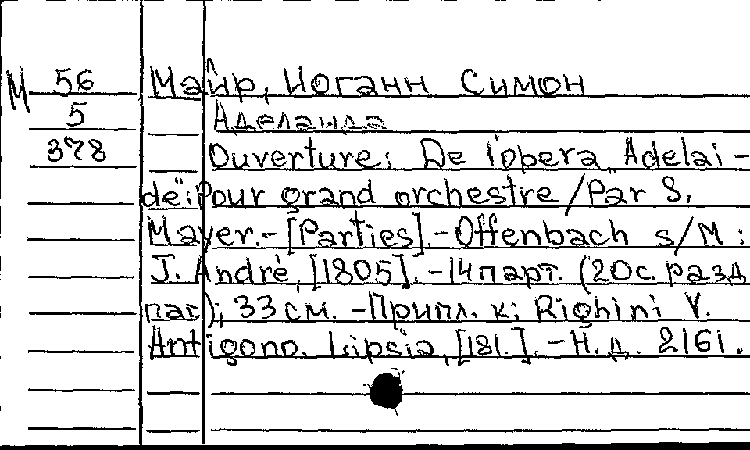 М 56 Майр, Иоганн Симон
5 Аделаида
378 Ouverture: De l'opera "Adelai-
de": Pour grand orchestre / Par S.
Mayer.- [Parties].- Offenbach s/M :
J. André, [1805]. - 14 парт. (20с. разд
паг); 33 см. - Припл. к: Righini V.
Antigono. Lipsia, [181.]. - Н. д. 2161.